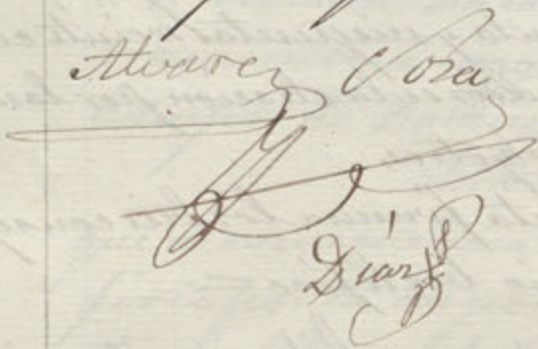 Alvarez Sosa
Díaz